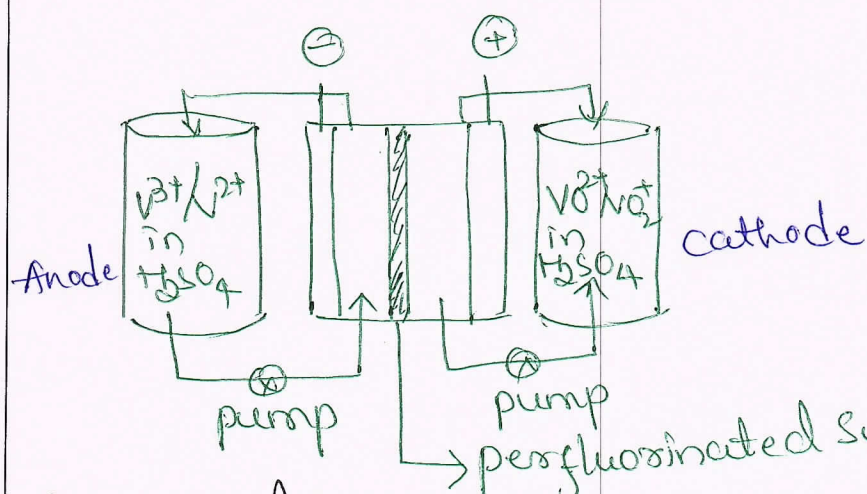 ⊖ ⊕
V³⁺/V²⁺
in
H₂SO₄
Anode
VO²⁺/VO₂⁺
in
H₂SO₄
cathode
pump
pump
perfluorinated